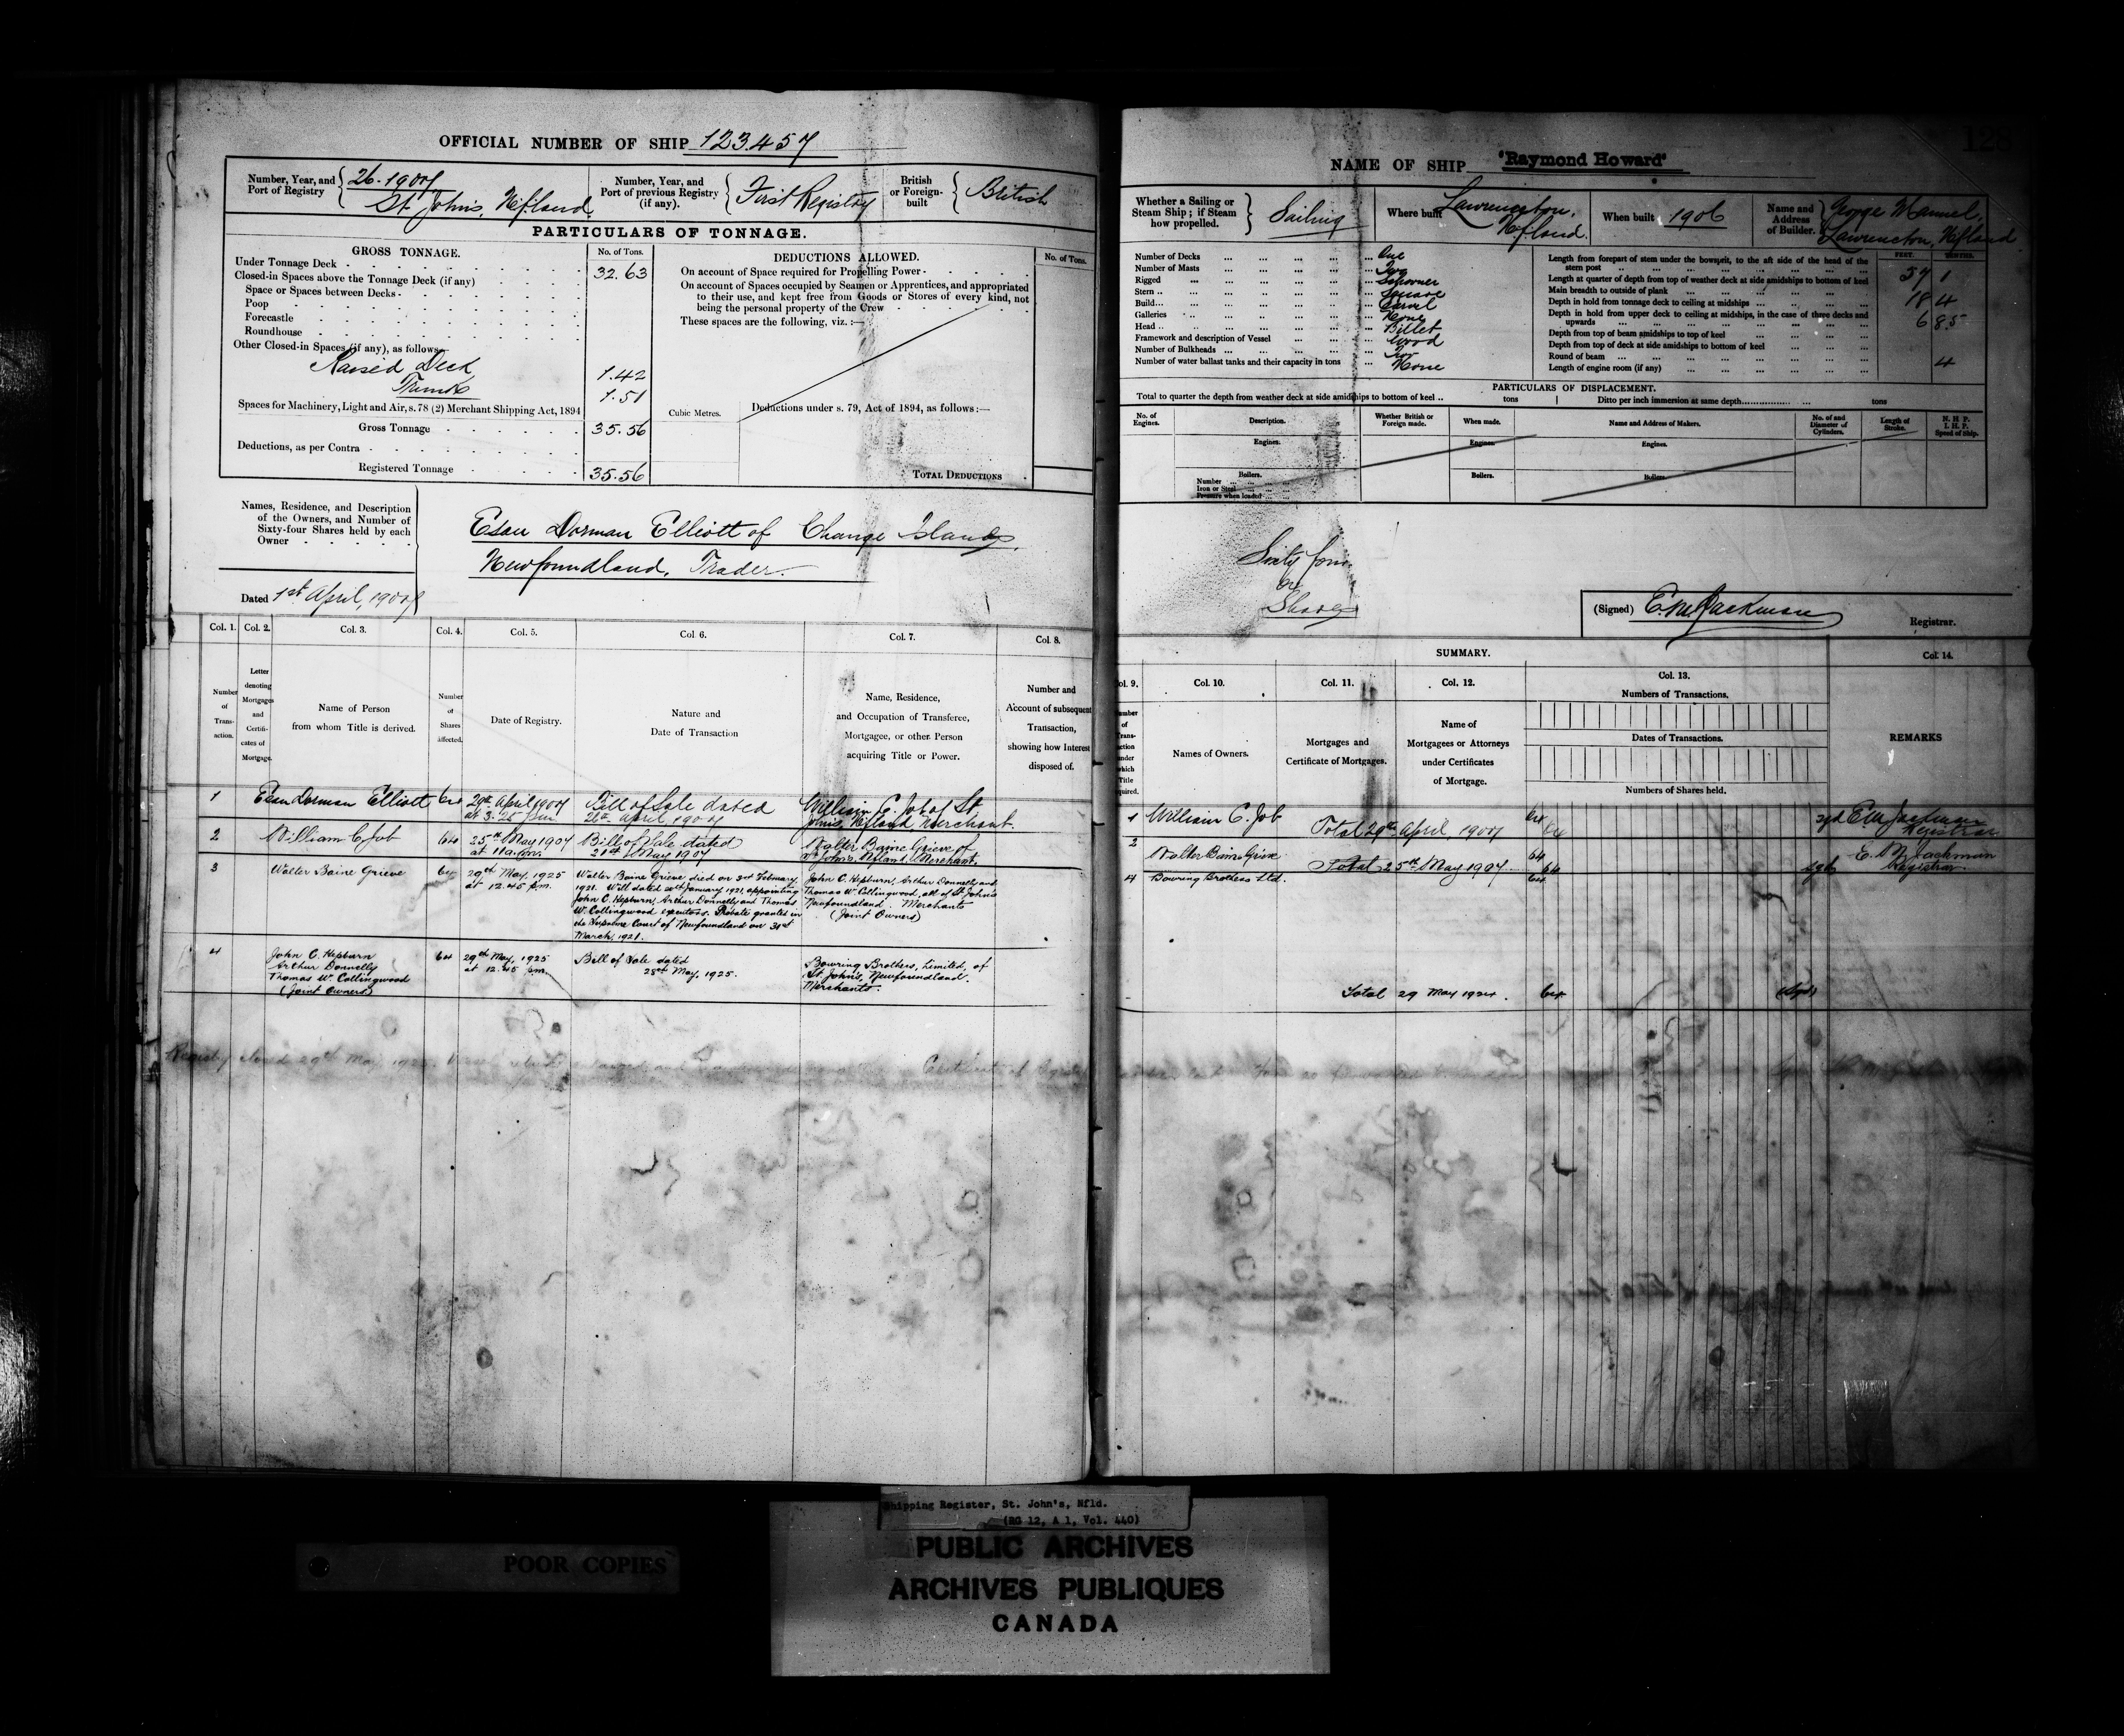 OFFICIAL NUMBER OF SHIP 123.457
Number, Year, and Port of Registry
26. 1907
St. John's, Nfland
Number, Year, and Port of previous Registry (if any).
First Registry
British or Foreign-built
British
PARTICULARS OF TONNAGE.
GROSS TONNAGE.
No. of Tons.
Under Tonnage Deck 32.63
Closed-in Spaces above the Tonnage Deck (if any)
Space or Spaces between Decks
Poop
Forecastle
Roundhouse
Other Closed-in Spaces (if any), as follows
Raised Deck 1.42
Trunk 1.51
Spaces for Machinery, Light and Air, s. 78 (2) Merchant Shipping Act, 1894
Gross Tonnage 35.56
Deductions, as per Contra
Registered Tonnage 35.56
Cubic Metres.
DEDUCTIONS ALLOWED.
No. of Tons.
On account of Space required for Propelling Power
On account of Spaces occupied by Seamen or Apprentices, and appropriated
to their use, and kept free from Goods or Stores of every kind, not
being the personal property of the Crew
These spaces are the following, viz. :—
Deductions under s. 79, Act of 1894, as follows :—
TOTAL DEDUCTIONS
Names, Residence, and Description
of the Owners, and Number of
Sixty-four Shares held by each
Owner
Esau Dorman Elliott of Change Islands,
Newfoundland, Trader.
Dated 1st April, 1907
Col. 1. Col. 2. Col. 3. Col. 4. Col. 5. Col. 6. Col. 7. Col. 8.
Number of Transaction.
Letter denoting Mortgages and Certificates of Mortgage.
Name of Person from whom Title is derived.
Number of Shares affected.
Date of Registry.
Nature and Date of Transaction
Name, Residence, and Occupation of Transferee, Mortgagee, or other Person acquiring Title or Power.
Number and Account of subsequent Transaction, showing how Interest disposed of.
1 Esau Dorman Elliott 64
29th April 1907
at 3.25 pm
Bill of Sale dated
April 1907
William C. Job of St
John's, Nfland, Merchant.
2 William C Job 64
25th May 1907
at 11 a.m.
Bill of Sale dated
21st May 1907
Walter Baine Grieve of
St. John's, Nfland, Merchant.
3 Walter Baine Grieve 64
29th May, 1925
at 12.45 p.m.
Walter Baine Grieve died on 3rd February,
1921. Will dated 20th January 1921, appointing
John C. Hepburn, Arthur Donnelly and Thomas
W. Collingwood executors. Probate granted in
the Supreme Court of Newfoundland on 31st
March, 1921.
John C. Hepburn, Arthur Donnelly and
Thomas W. Collingwood, all of St. John's
Newfoundland. Merchants
(Joint Owners)
4 John C. Hepburn
Arthur Donnelly
Thomas W. Collingwood
(Joint Owners)
64
29th May, 1925
at 12.45 pm.
Bill of Sale dated
28th May, 1925.
Bowring Brothers, Limited, of
St. John's, Newfoundland.
Merchants.
Registry closed 29th May 1925.
Certificate of Registry
128
NAME OF SHIP "Raymond Howard"
Whether a Sailing or Steam Ship ; if Steam how propelled.
Sailing
Where built
Lawrenceton,
Nfland.
When built 1906
Name and Address of Builder.
George Manuel,
Lawrenceton, Nfland
Number of Decks One
Number of Masts Two
Rigged Schooner
Stern Square
Build Carvel
Galleries None
Head Billet
Framework and description of Vessel Wood
Number of Bulkheads Two
Number of water ballast tanks and their capacity in tons None
FEET. TENTHS.
Length from forepart of stem under the bowsprit, to the aft side of the head of the
stern post 57 1
Length at quarter of depth from top of weather deck at side amidships to bottom of keel
Main breadth to outside of plank 18 4
Depth in hold from tonnage deck to ceiling at midships 6 85
Depth in hold from upper deck to ceiling at midships, in the case of three decks and
upwards
Depth from top of beam amidships to top of keel
Depth from top of deck at side amidships to bottom of keel
Round of beam 4
Length of engine room (if any)
PARTICULARS OF DISPLACEMENT.
Total to quarter the depth from weather deck at side amidships to bottom of keel tons
Ditto per inch immersion at same depth tons
No. of Engines.
Description.
Whether British or Foreign made.
When made.
Name and Address of Makers.
No. of and Diameter of Cylinders.
Length of Stroke.
N. H. P.
I. H. P.
Speed of Ship.
Engines. Engines. Engines.
Boilers. Boilers. Boilers.
Number
Iron or Steel
Pressure when loaded
Sixty four
Shares
(Signed) E.M. Jackman
Registrar.
SUMMARY.
Col. 9. Col. 10. Col. 11. Col. 12. Col. 13. Col. 14.
Names of Owners.
Mortgages and Certificate of Mortgages.
Name of Mortgagees or Attorneys under Certificates of Mortgage.
Numbers of Transactions.
Dates of Transactions.
Numbers of Shares held.
REMARKS
1 William C. Job 64
Total 29th April, 1907 64
sgd E.M. Jackman
Registrar
2 Walter Baine Grieve 64
Total 25th May 1907 64
sgd E. M. Jackman
Registrar
4 Bowring Brothers Ltd. 64
Total 29 May 1924. 64 (Sgd)
POOR COPIES
Shipping Register, St. John's, Nfld.
(RG 12, A 1, Vol. 440)
PUBLIC ARCHIVES
ARCHIVES PUBLIQUES
CANADA